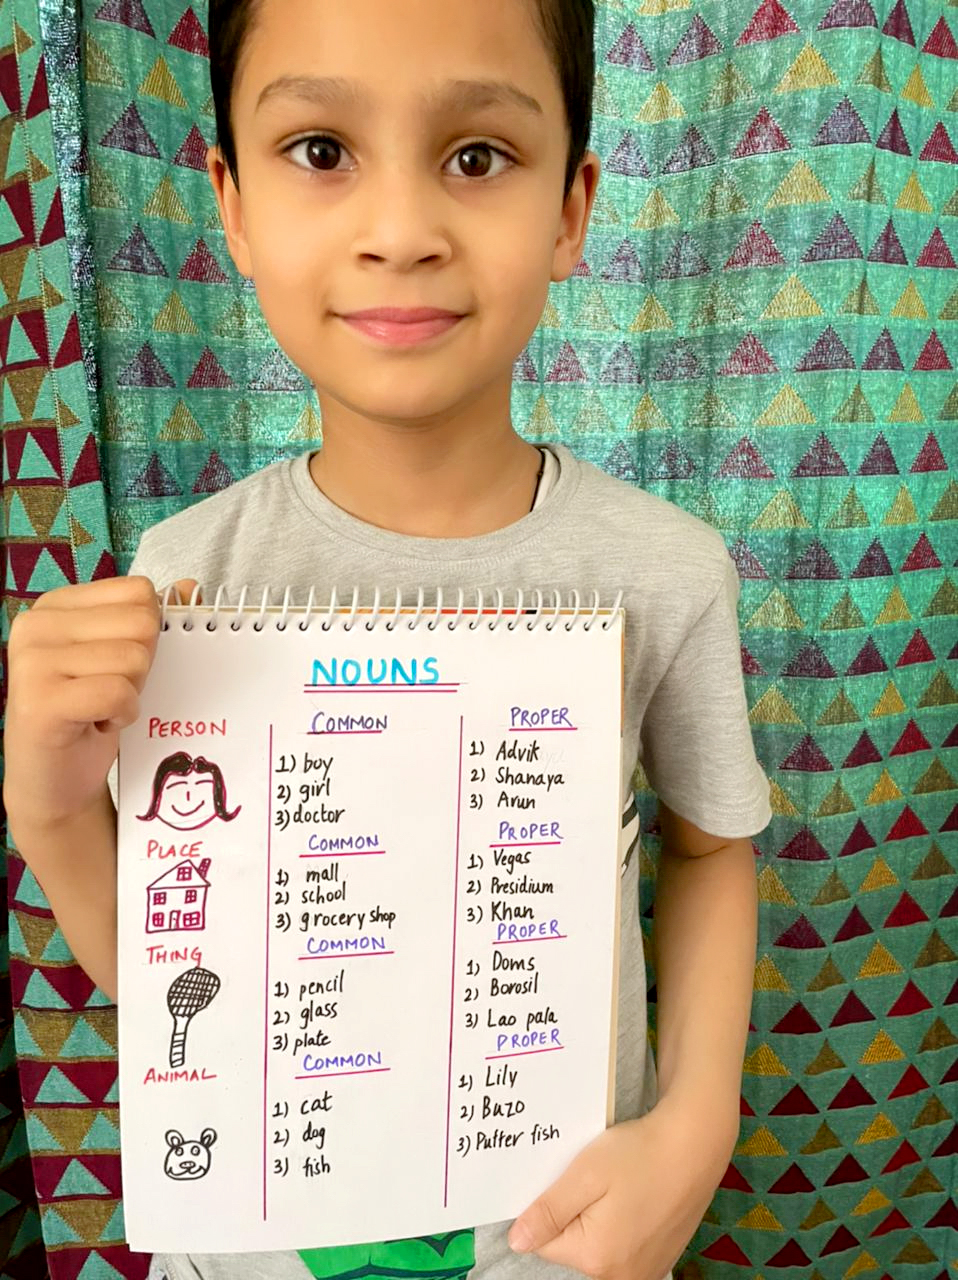 NOUNS
PERSON
COMMON
1) boy
2) girl
3) doctor
PROPER
1) Advik
2) Shanaya
3) Arun
PLACE
COMMON
1) mall
2) school
3) grocery shop
PROPER
1) Vegas
2) Presidium
3) Khan
THING
COMMON
1) pencil
2) glass
3) plate
PROPER
1) Doms
2) Borosil
3) Lao pala
ANIMAL
COMMON
1) cat
2) dog
3) fish
PROPER
1) Lily
2) Buzo
3) Puffer fish